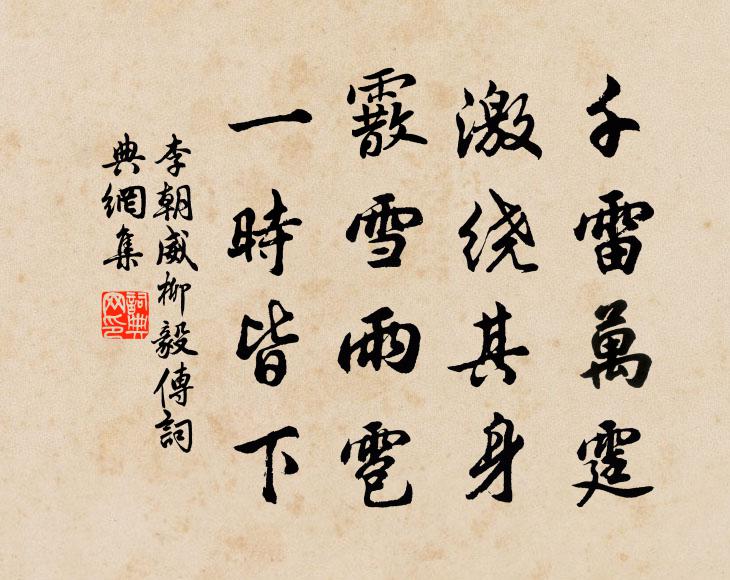 千雷萬霆
激绕其身
霰雪雨雹
一時皆下
李朝威柳毅傳詞
典網集
詞典
网印